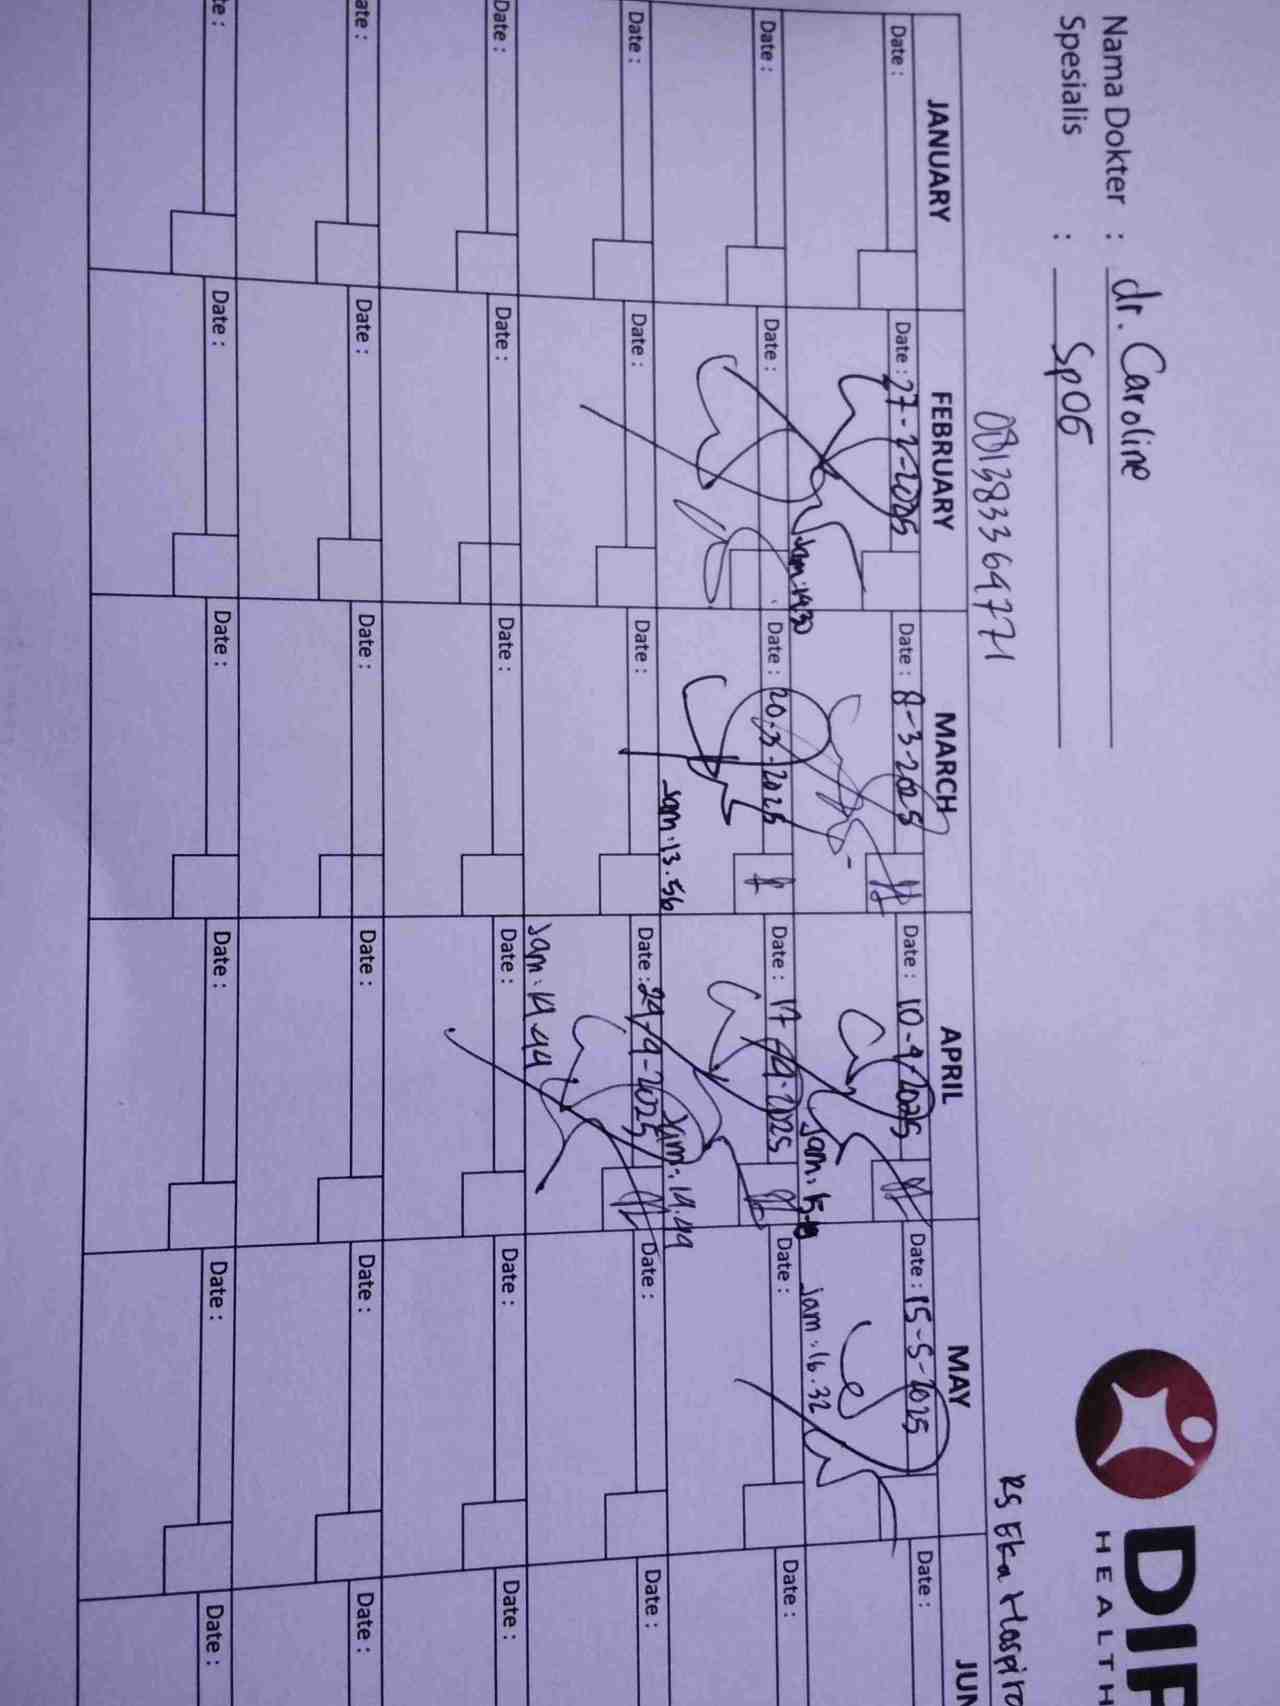 DIF
HEALTH
Nama Dokter : dr. Caroline
Spesialis : SpOG
081383364771
RS Eka Hospita
JANUARY FEBRUARY MARCH APRIL MAY JUN
Date : Date : 27-2-2025 Date : 8-3-2025 Date : 10-4-2025 Date : 15-5-2025 Date :
Jam : 14.30 Jam : 15. Jam : 16.32
Date : Date : Date : 20-3-2025 Date : 17-4-2025 Date : Date :
Jam : 13.56 Jam : 14.44
Date : Date : Date : Date : 24-4-2025 Date : Date :
Jam : 14.44
Date : Date : Date : Date : Date : Date :
ate : Date : Date : Date : Date : Date :
te : Date : Date : Date : Date : Date :